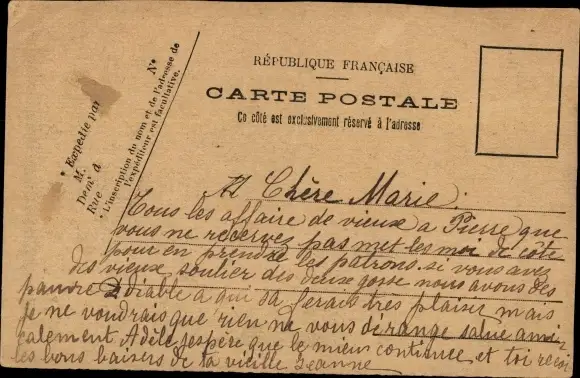 RÉPUBLIQUE FRANÇAISE
CARTE POSTALE
Ce côté est exclusivement réservé à l'adresse
* Expédié par
M.
Demt à
Rue
N°
* L'inscription du nom et de l'adresse de
l'expéditeur est facultative.
M Chère Marie.
Tous les affaire de vieux a Pierre que
vous ne reservez pas met les moi de côté
pour en prendre les patrons. si vous avez
des vieux soulier des deux gosse nous avons des
pauvre diable a qui sa ferais tres plaisir mais
je ne voudrais que rien ne vous derange salue amie
calement Adèle j'espère que le mieux continue et toi reçoi
les bons baisers de ta vieille Jeanne